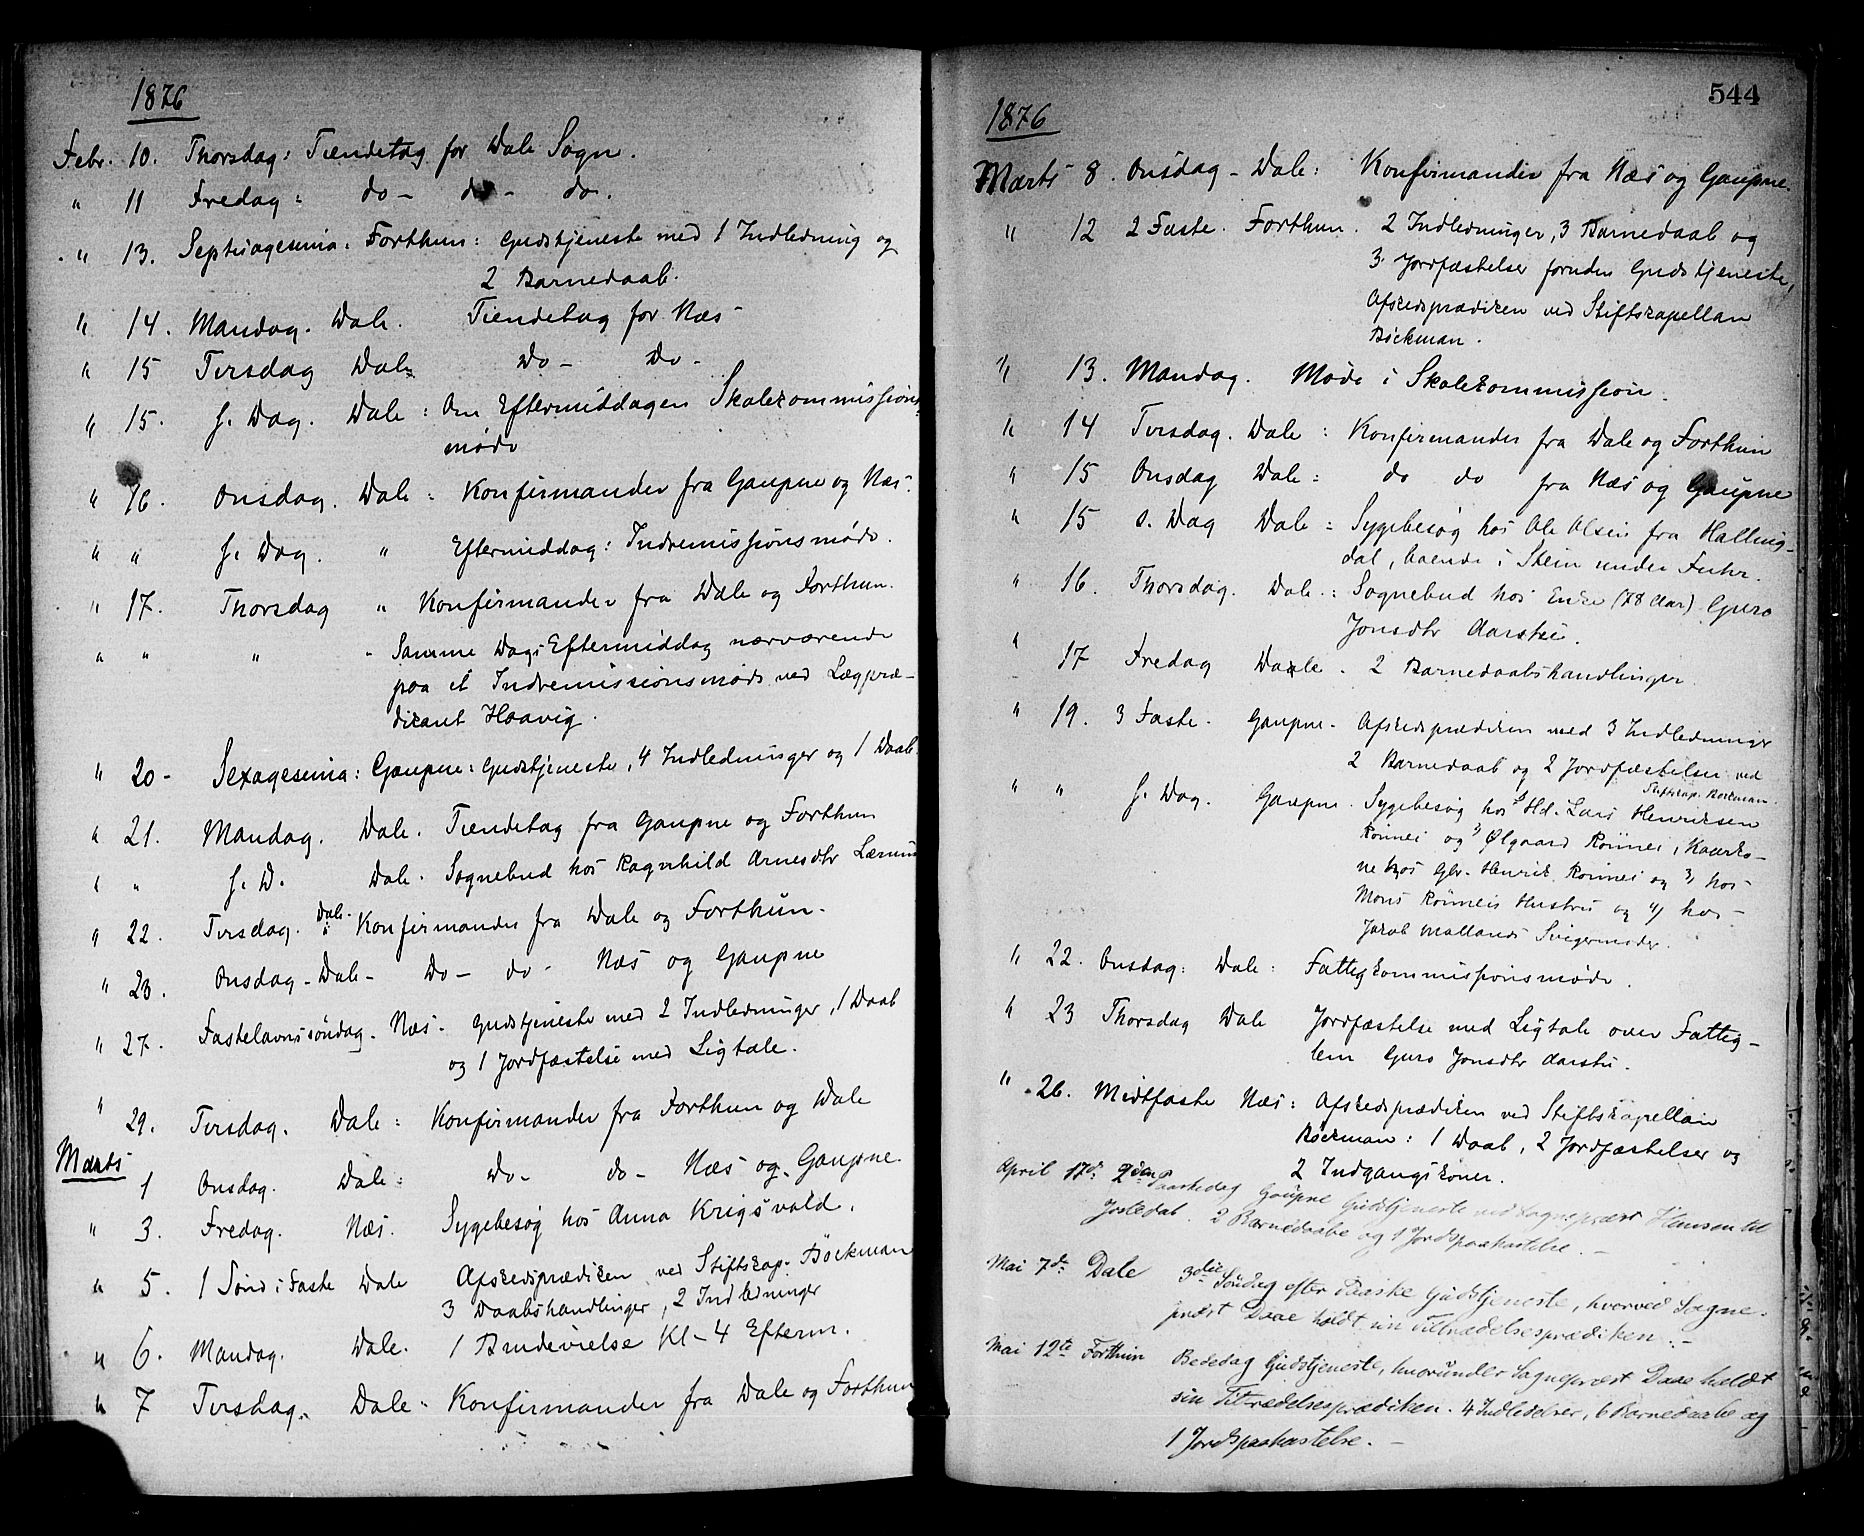 1876
Febr. 10. Thorsdag: Tiendetag for Dale Sogn.
" 11 Fredag: do - do - do.
" 13. Septuagesima. Forthun: Gudstjeneste med 1 Indledning og
2 Barnedaab.
" 14. Mandag. Dale. Tiendetag for Næs
" 15 Tirsdag Dale Do - Do -
" 15. s. Dag. Dale: Om Eftermiddagen Skolekommissions-
møde
" 16. Onsdag. Dale: Konfirmander fra Gaupne og Næs.
" " s. Dag. " Eftermiddag: Indremissionsmøde.
" 17. Thorsdag " Konfirmander fra Dale og Forthun.
" " " " Samme Dags Eftermiddag nærværende
paa et Indremissionsmøde ved Lægpræ-
dikant Haavig.
" 20 - Sexagesima: Gaupne: Gudstjeneste, 4 Indledninger og 1 Daab
" 21. Mandag. Dale. Tiendetag fra Gaupne og Forthun
" " s. D. Dale. Sognebud hos Ragnhild Arnesdtr
" 22. Tirsdag. Dale: Konfirmander fra Dale og Forthun.
" 23. Onsdag - Dale - Do - do - Næs og Gaupne
" 27. Fastelavnssöndag. Næs - Gudstjeneste med 2 Indledninger, 1 Daab
og 1 Jordfæstelse med Ligtale.
" 29. Tirsdag. Dale: Konfirmander fra Forthun og Dale
Marts
1 Onsdag. Dale: Do - do - Næs og Gaupne.
" 3. Fredag. Næs. Sygebesøg hos Anna Krigsvold.
" 5. 1 Sönd i Faste Dale Afskedsprædiken ved Stiftskap. Böckman
3 Daabshandlinger, 2 Indledninger
" 6. Mandag. Dale. 1 Brudevielse Kl - 4 Efterm.
" 7 Tirsdag. Dale. Konfirmander fra Dale og Forthun
544
1876
Marts 8. Onsdag - Dale: Konfirmander fra Næs og Gaupne.
" 12 2 Faste. Forthun. 2 Indledninger, 3 Barnedaab og
3 Jordfæstelser foruden Gudstjeneste,
Afskedsprædiken ved Stiftskapellan
Böckman.
" 13. Mandag. Møde i Skolekommission.
" 14 Tirsdag. Dale: Konfirmander fra Dale og Forthun
" 15 Onsdag Dale: do do fra Næs og Gaupne
" 15 s. Dag Dale: Sygebesøg hos Ole Olsen fra Halling-
dal, boende i Stein under
" 16. Thorsdag. Dale: Sognebud hos Enke (78 Aar) Guro
Jonsdtr
" 17 Fredag Dale. 2 Barnedaabshandlinger.
" 19. 3 Faste. Gaupne. Afskedsprædiken med 3 Indledninger
2 Barnedaab og 2 Jordfæstelser ved
Stiftskap. Böckman.
" " s. Dag. Gaupne. Sygebesøg hos Hd. Lars Henriksen
Rönnei og 2/ Ølgaard Rönnei,
hos Gbr. Henrik Rönnei og 3/ hos
Mons Rönneis Hustru og 4/ hos
Jakob Mollands Svigermoder.
" 22. Onsdag: Dale: Fattigkommissionsmøde.
" 23 Thorsdag Dale Jordfæstelse med Ligtale over Fattig-
lem Guro Jonsdtr
" 26. Midtfaste Næs: Afskedsprædiken ved Stiftskapellan
Böckman: 1 Daab, 2 Jordfæstelser og
2 Indgangskoner.
April 17de 2den Paaskedag Gaupne Gudstjeneste ved Sognepræst Hansen til
Jostedal. 2 Barnedaabe og 1 Jordspaakastelse. -
Mai 7de Dale 3die Söndag efter Paaske Gudstjeneste, hvorved Sogne-
præst Daae holdt sin Tiltrædelsesprædiken. -
Mai 12te Forthun Bededag Gudstjeneste, hvorunder Sognepræst Daae holdt
sin Tiltrædelsesprædiken. 4 Indledelser, 6 Barnedaabe og
1 Jordspaakastelse. -